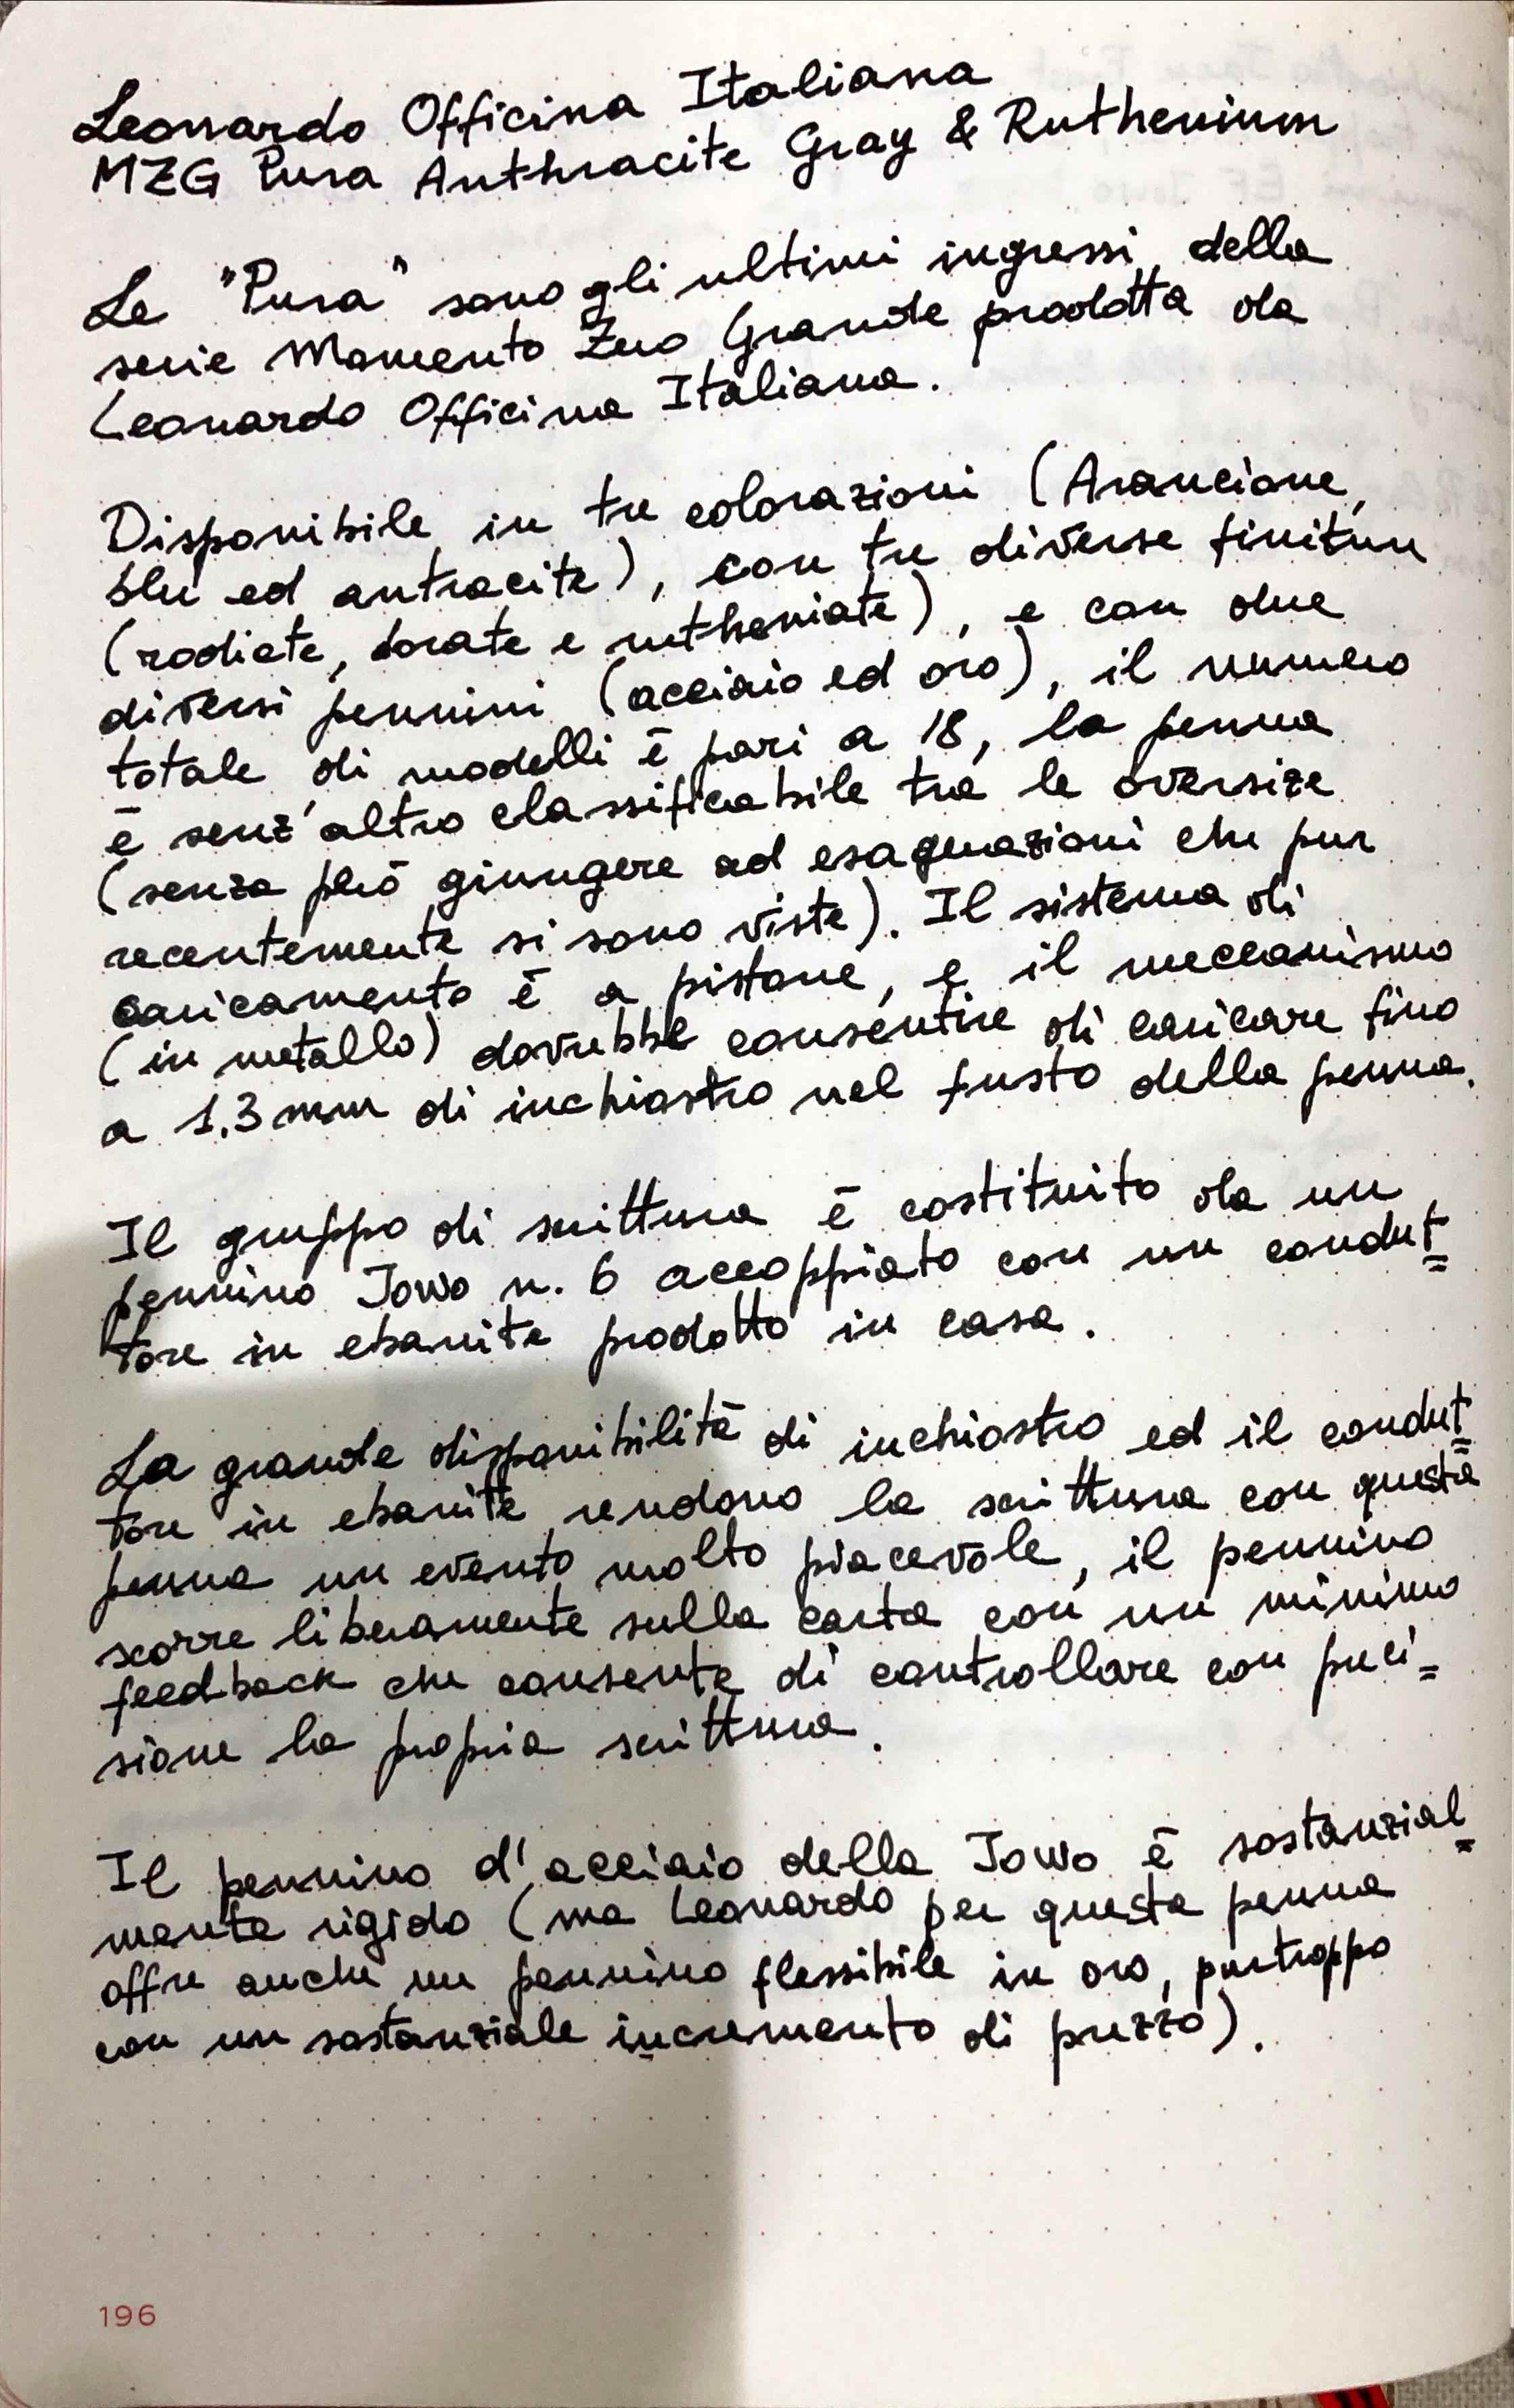 Leonardo Officina Italiana
MZG Pura Anthracite Gray & Ruthenium
Le "Pura" sono gli ultimi ingressi della
serie Momento Zero Grande prodotta da
Leonardo Officina Italiana.
Disponibile in tre colorazioni (Arancione,
blu ed antracite), con tre diverse finiture
(rodiate, dorate e rutheniate), e con due
diversi pennini (acciaio ed oro), il numero
totale di modelli è pari a 18, la penna
è senz'altro classificabile tra le oversize
(senza però giungere ad esagerazioni che pur
recentemente si sono viste). Il sistema di
caricamento è a pistone, e il meccanismo
(in metallo) dovrebbe consentire di caricare fino
a 1.3 mm di inchiostro nel fusto della penna.
Il gruppo di scrittura è costituito da un
pennino Jowo n. 6 accoppiato con un condut=
tore in ebanite prodotto in casa.
La grande disponibilità di inchiostro ed il condut=
tore in ebanite rendono la scrittura con questa
penna un evento molto piacevole, il pennino
scorre liberamente sulla carta con un minimo
feedback che consente di controllare con preci=
sione la propria scrittura.
Il pennino d'acciaio della Jowo è sostanzial=
mente rigido (ma Leonardo per questa penna
offre anche un pennino flessibile in oro, purtroppo
con un sostanziale incremento di prezzo).
196